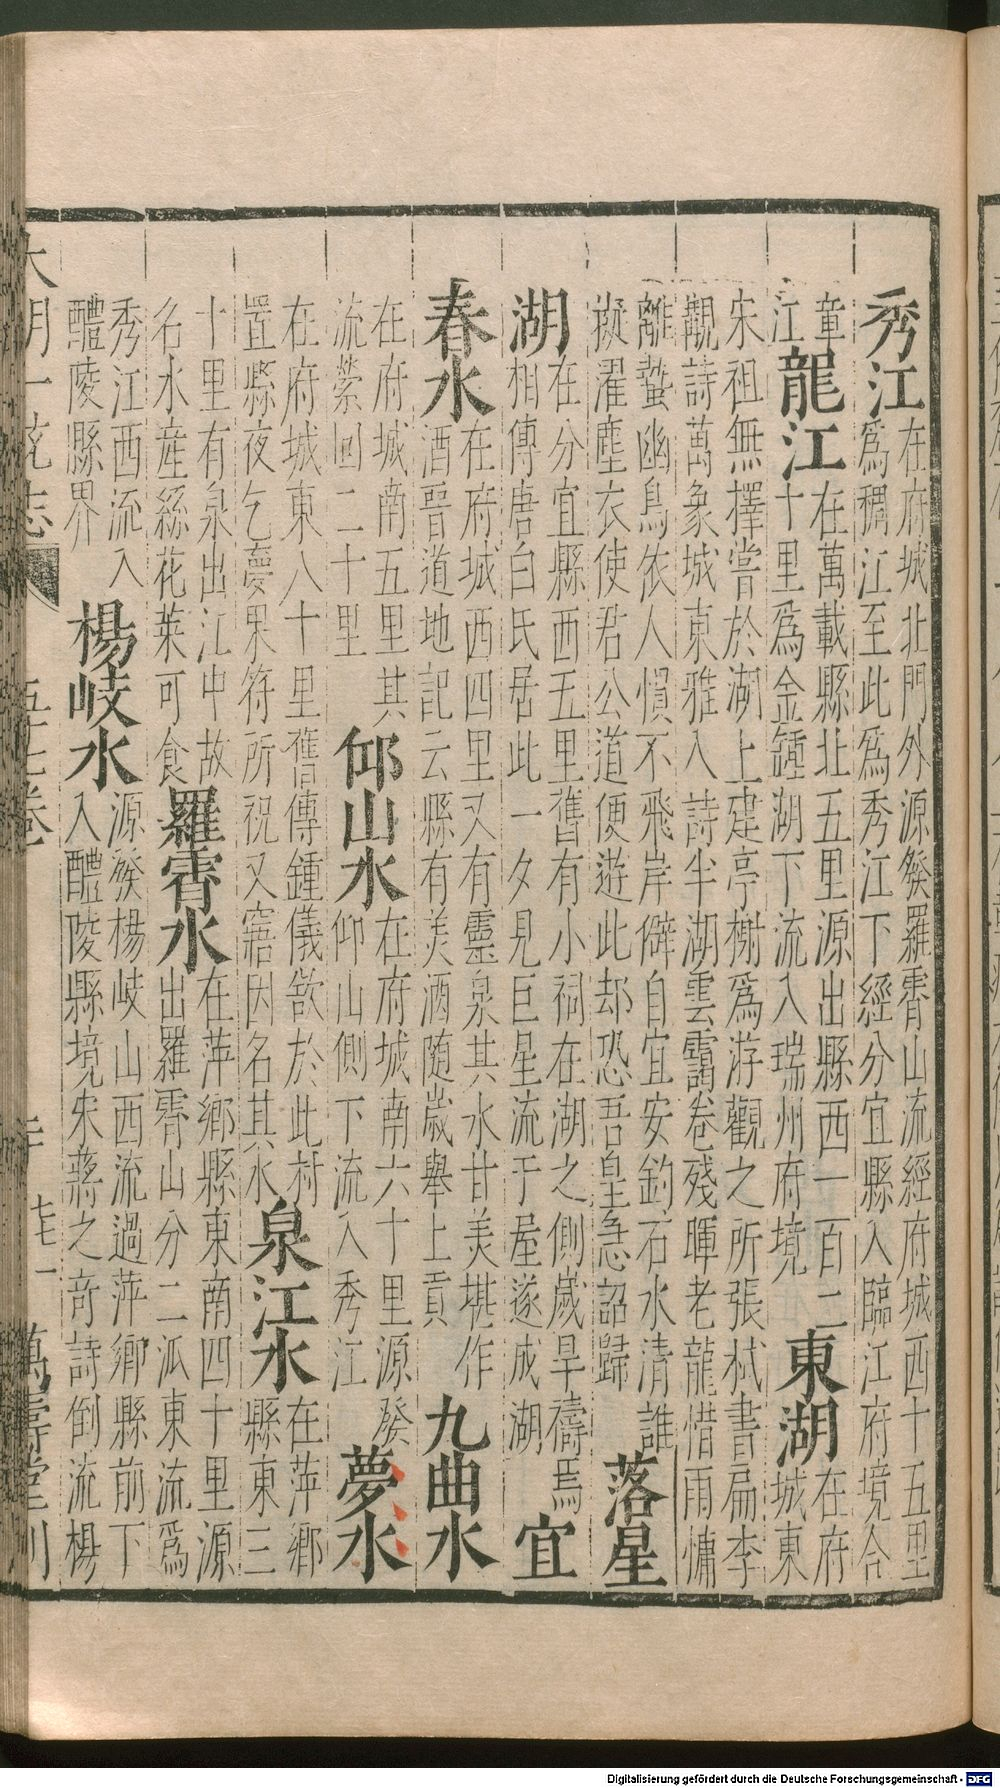 秀江在府城北門外源發羅霄山流經府城西十五里
爲稠江至此爲秀江下經分宜縣入臨江府境合
章
江
龍江在萬載縣北五里源出縣西一百二
十里爲金鍾湖下流入瑞州府境
東湖在府
城東
宋祖無擇嘗於湖上建亭榭爲游觀之所張栻書扁李
觀詩萬象城東雅入詩半湖雲靄卷殘暉老龍惜雨慵
離蟄幽鳥依人慣不飛岸僻自宜安釣石水清誰
擬濯塵衣使君公道便遊此却恐吾皇急詔歸
落星
湖在分宜縣西五里舊有小祠在湖之側歲旱禱焉
相傳唐白氏居此一夕見巨星流于屋遂成湖
宜
春水在府城西四里又有靈泉其水甘美堪作
酒晉道地記云縣有美酒隨歲舉上貢
九曲水
在府城南五里其
流縈回二十里
仰山水在府城南六十里源發
仰山側下流入秀江
夢水
在府城東八十里舊傳鍾儀欲於此村
置縣夜乞夢果符所祝又寤因名其水
泉江水在萍鄉
縣東三
十里有泉出江中故
名水産絲花菜可食
羅霄水在萍鄉縣東南四十里源
出羅霄山分二派東流爲
秀江西流入
醴陵縣界
楊岐水源發楊岐山西流過萍鄉縣前下
入醴陵縣境宋蔣之奇詩倒流楊
大明一统志
五十七卷
萬壽堂刊
Digitalisierung gefördert durch die Deutsche Forschungsgemeinschaft - DFG